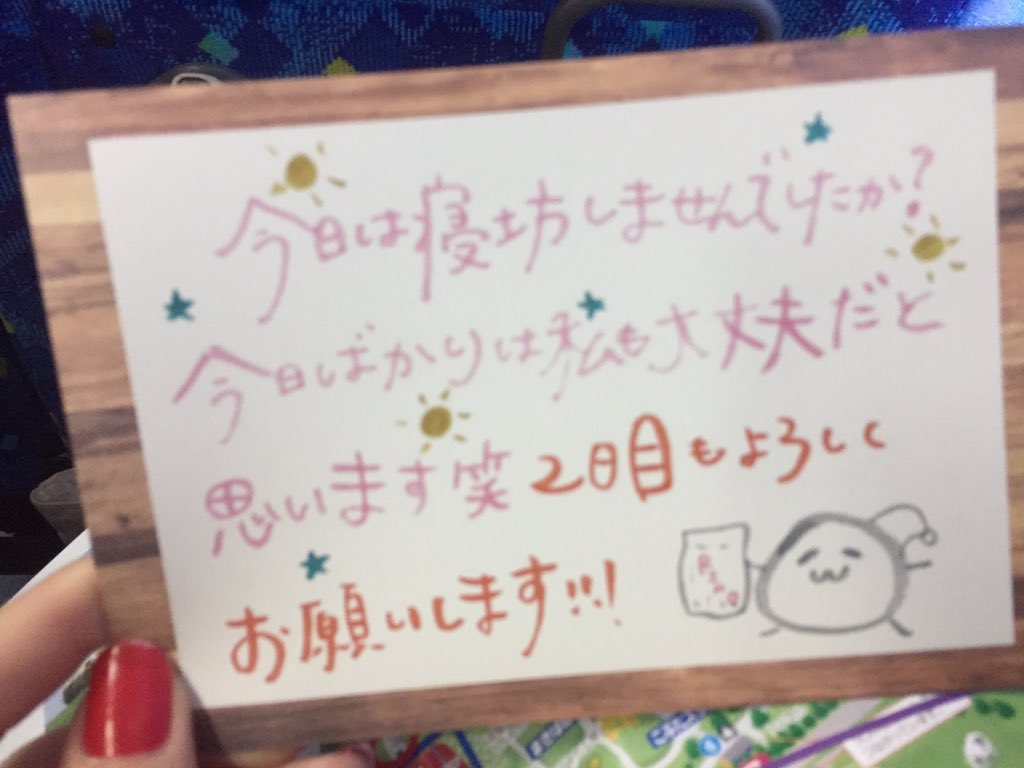 今日は寝坊しませんでしたか?
今日ばかりは私も大丈夫だと
思います笑 2日目もよろしく
お願いします!!!